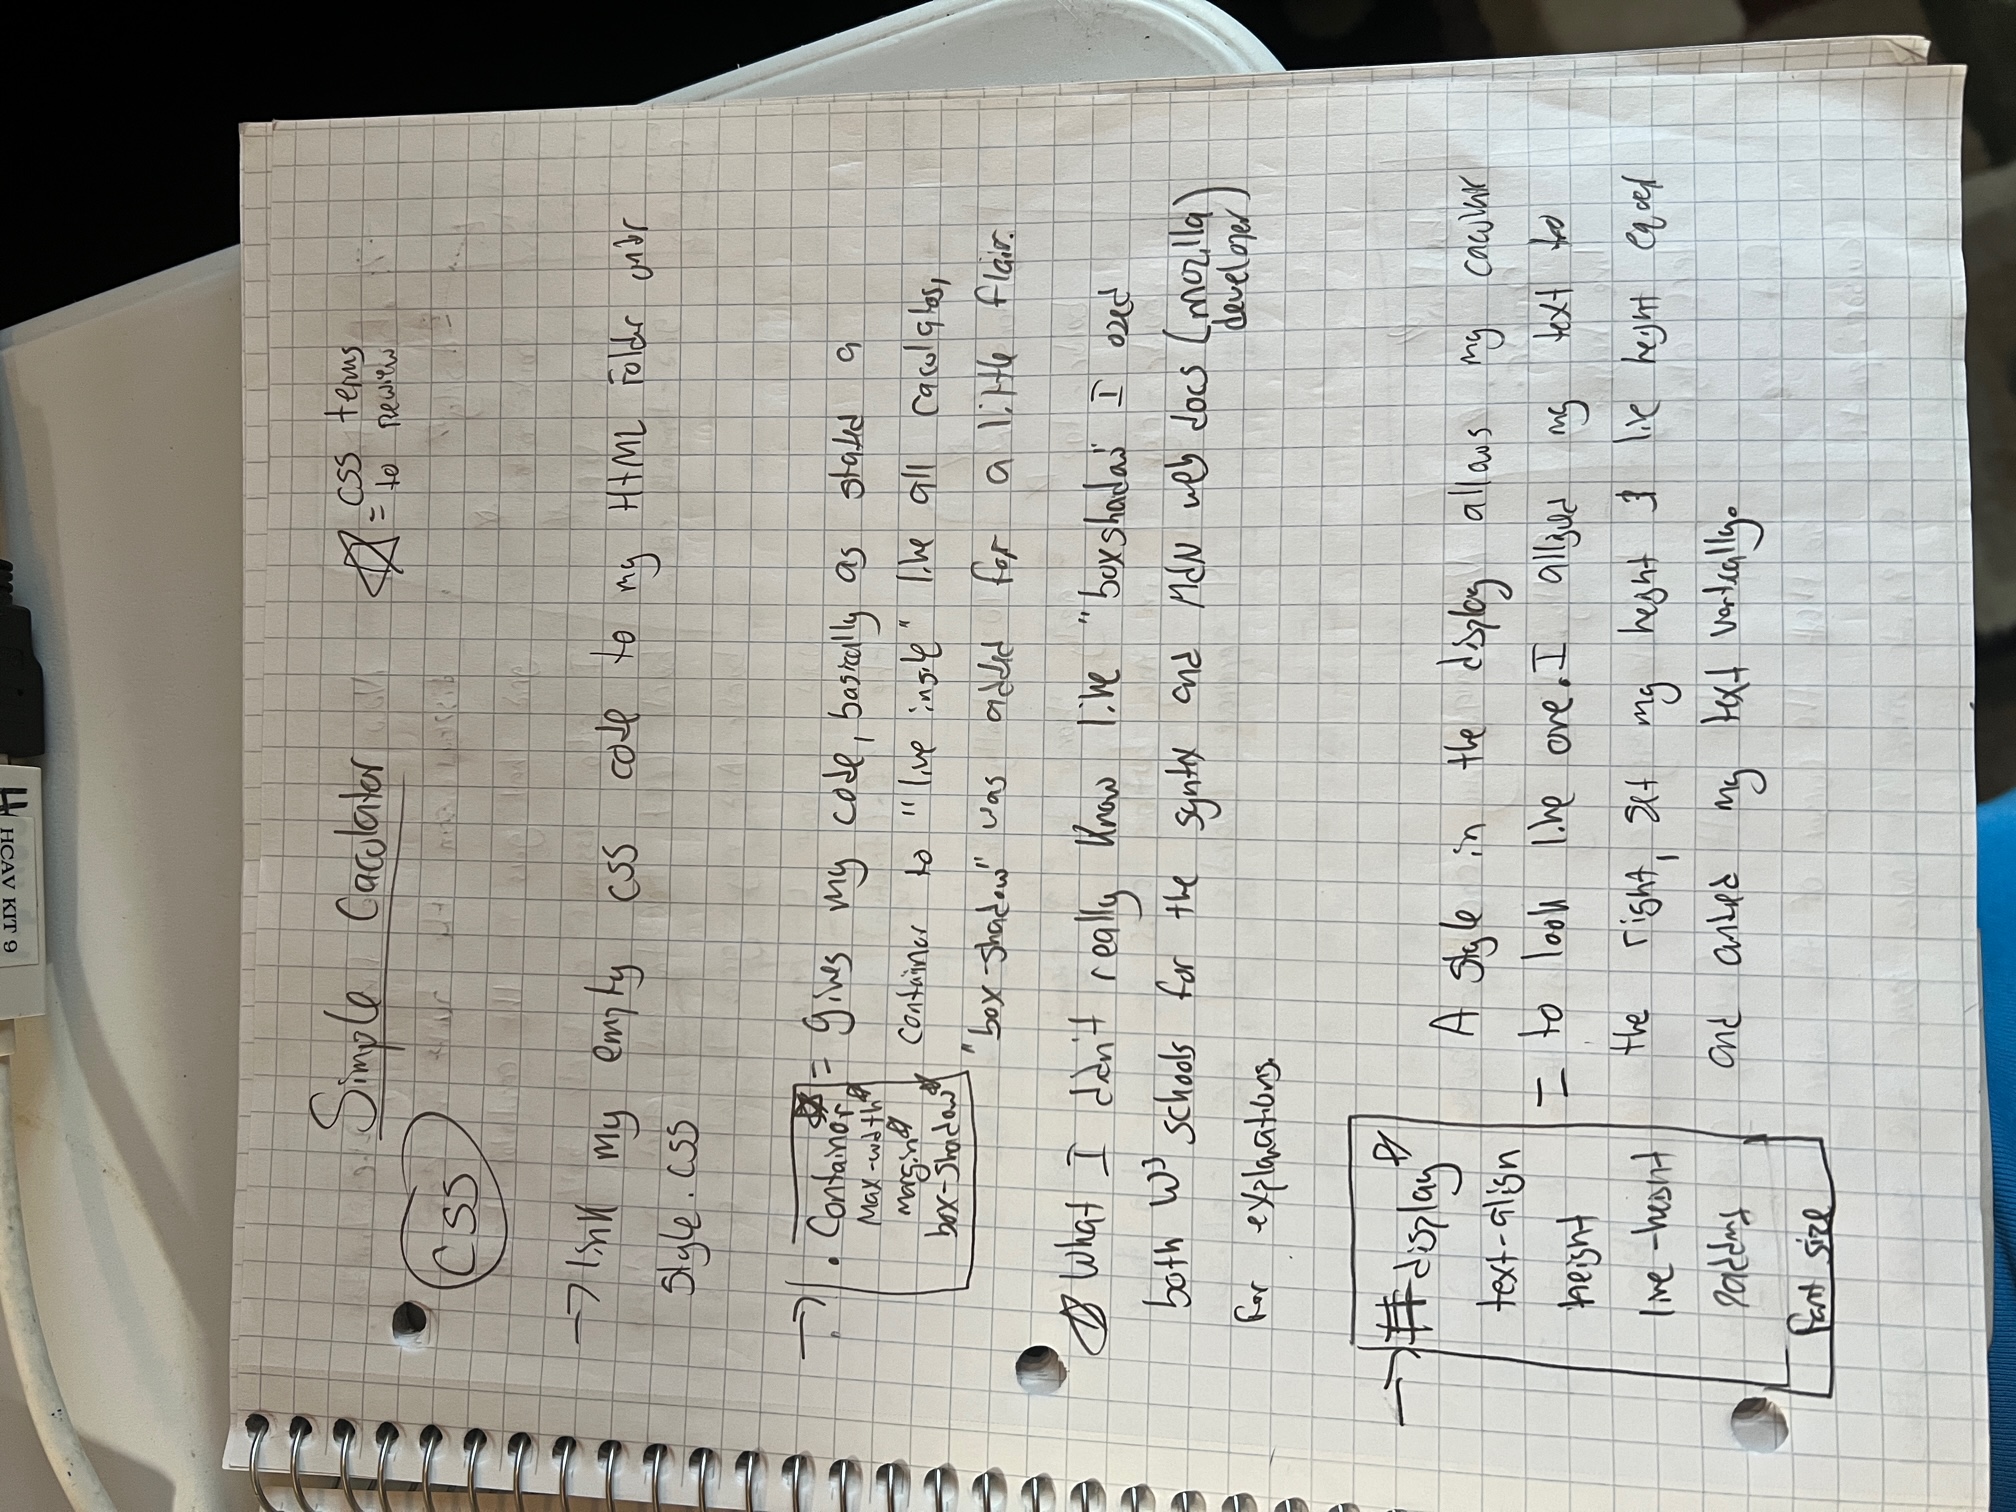 HCAV KIT 9
Simple Caculator
☆ = CSS terms
to Review
CSS
→ link my empty CSS code to my HTML Folder undr
Style.CSS
→ . Container☆ = gives my code, basically as stated a
Max-width☆
margin☆
box-shadow☆
container to "live inside" like all caculators,
"box-shadow" was added for a little flair.
☆ What I didn't really know like "boxshadow" I used
both W3 schools for the syntax and MdN web docs (mozilla
developer)
For explanations.
→ # display☆
text-align
height
line-height
padding
Font size
A style in the display allows my
= to look like one. I my text to
the right, set my height & line height equal
and my text vertically.